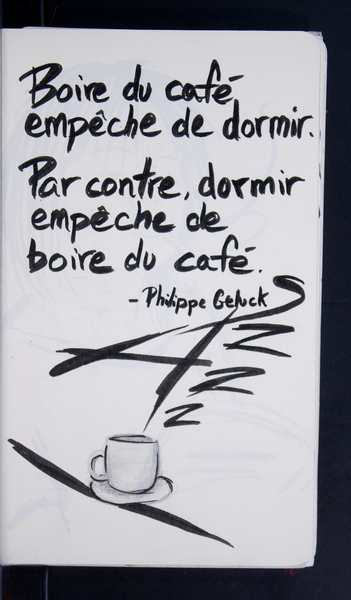 Boire du café
empêche de dormir.
Par contre, dormir
empêche de
boire du café.
- Philippe Geluck
Z
Z
Z